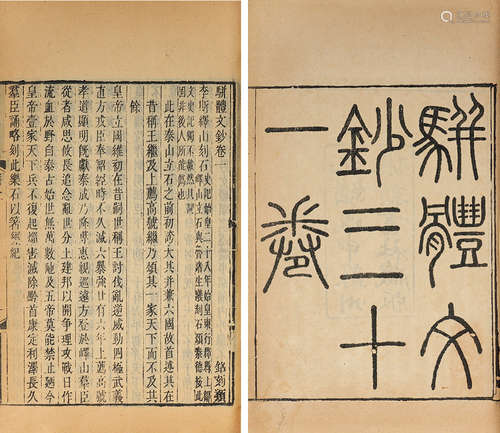 駢體文
鈔三十
一卷
駢體文鈔卷一 銘刻類
李斯繹山刻石
此在泰山立石之前初為大其并兼六國故首述其在
昔稱王繼及上薦高號繼乃頌其一家天下而不及其
餘
皇帝立國維初在昔嗣世稱王討伐亂逆威動四極武義
直方戎臣奉詔經時不久滅六暴強廿有六年上薦高號
孝道顯明既獻泰成乃降專惠親巡遠方登於嶧山羣臣
從者咸思攸長追念亂世分土建邦以開爭理攻戰日作
流血於野自泰古始世無萬數陁及五帝莫能禁止迺今
皇帝壹家天下兵不復起災害滅除黔首康定利澤長久
羣臣誦略刻此樂石以箸經紀